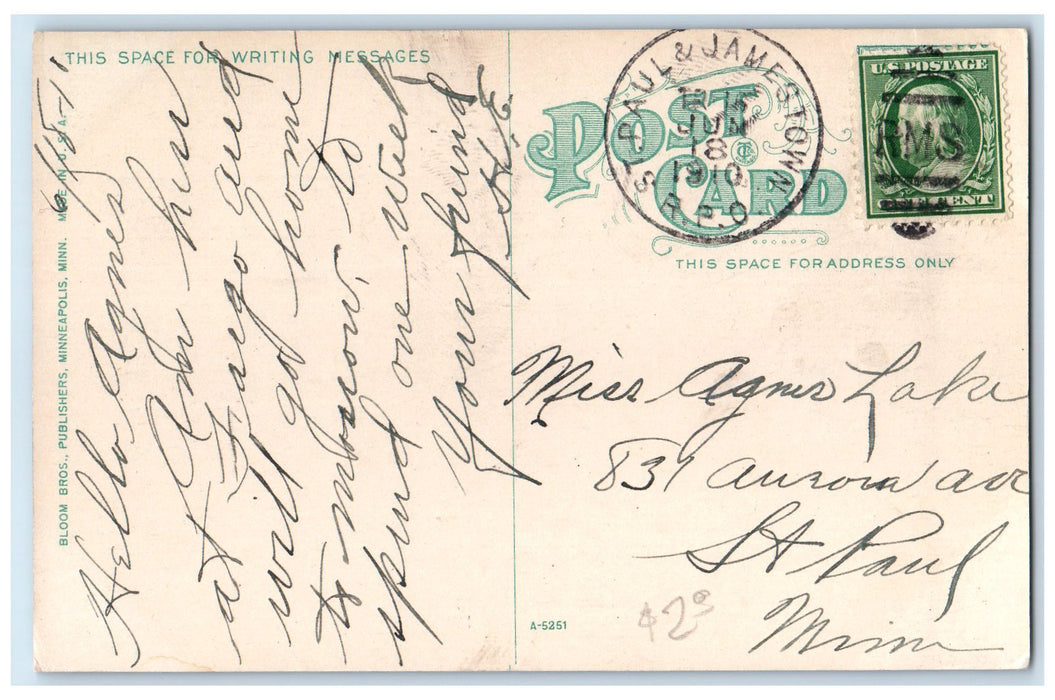 THIS SPACE FOR WRITING MESSAGES
Hello Agnes
Am here
at Fargo and
will go home
to Moscow, to
spend one week
Your friend
BLOOM BROS., PUBLISHERS, MINNEAPOLIS, MINN. MADE IN U.S.A.
POST CARD
THIS SPACE FOR ADDRESS ONLY
ST. PAUL & JAMESTOWN
JUN
18
1910
R.P.O.
U.S. POSTAGE
RMS
ONE CENT
Miss Agnes Lake
831 Aurora ave
St Paul
Minn
A-5251
$2